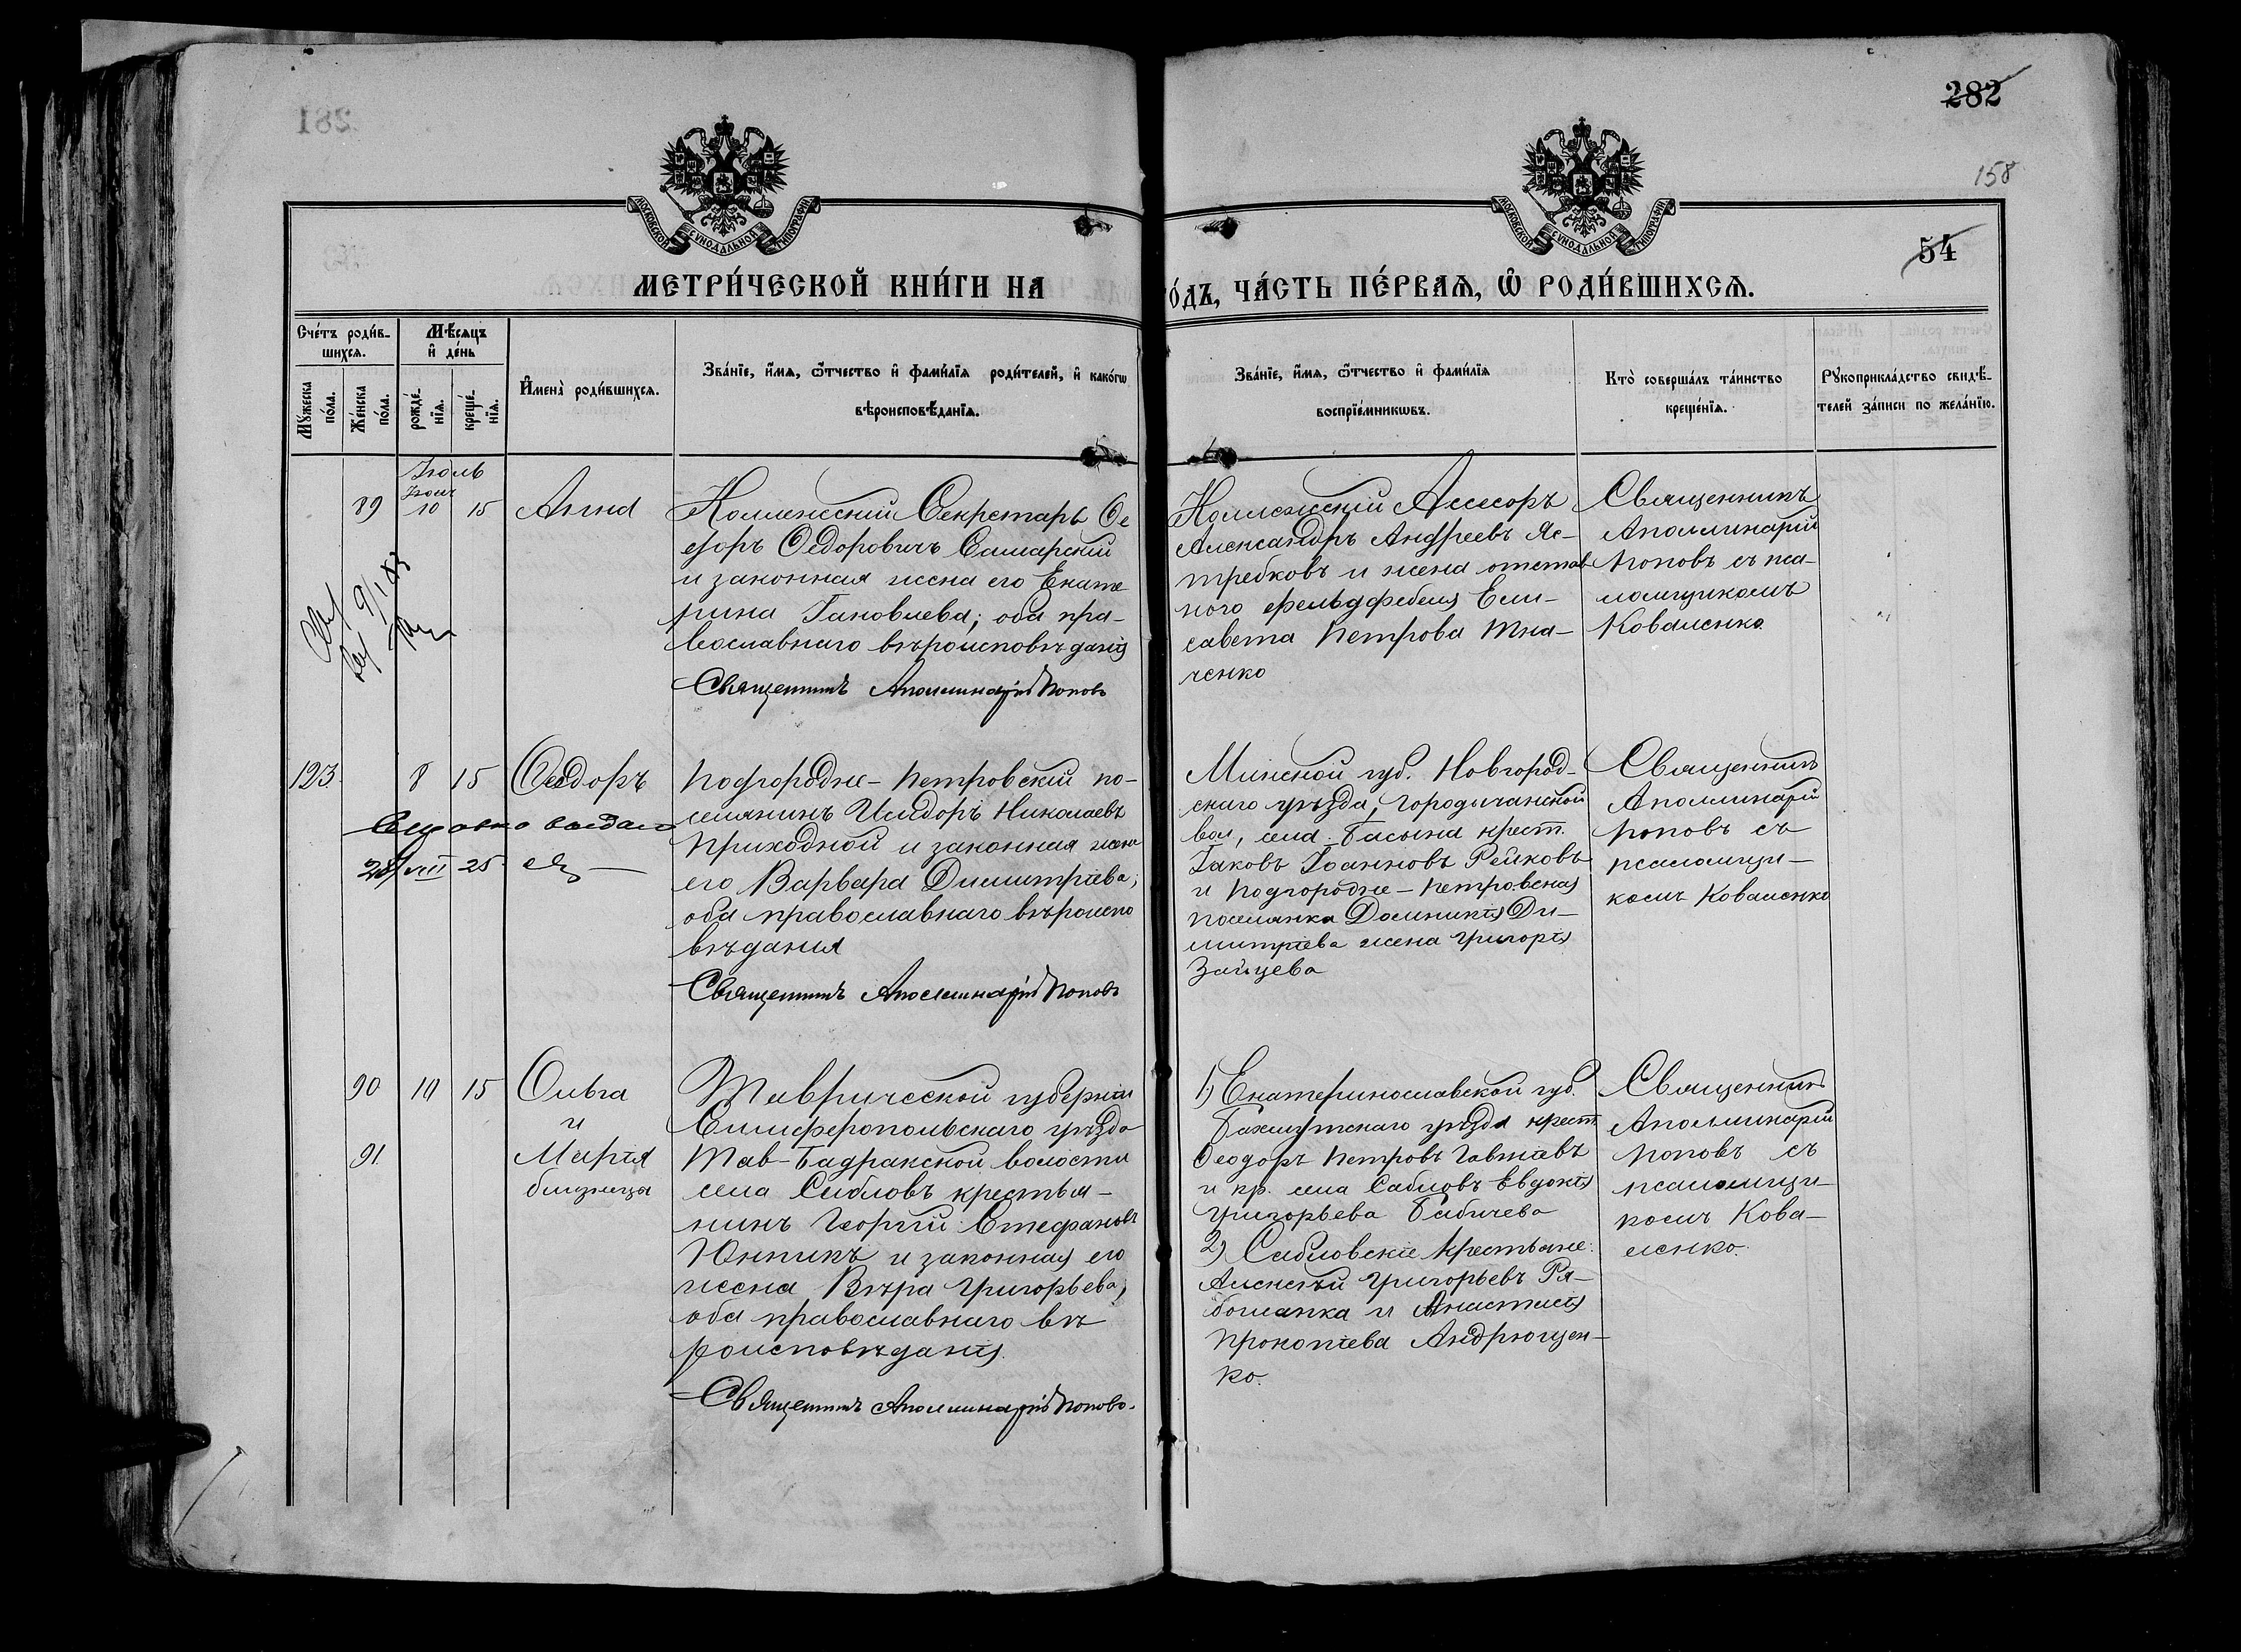 282
158
54
МОСКОВСКОЙ СѴНОДАЛЬНОЙ ТИПОГРАФІИ
МОСКОВСКОЙ СѴНОДАЛЬНОЙ ТИПОГРАФІИ
МЕТРИ́ЧЕСКОЙ КНИ́ГИ НА
О́ДЪ, ЧА́СТЬ ПЕ́РВАѦ, Ѡ҆ РОДИ́ВШИХСѦ.
Сче́тъ роди́в-
шихсѧ.
Мꙋжеска по́ла.
Же́нска по́ла.
Мѣ́сѧцъ
и҆ де́нь
рожде́-
нїѧ.
креще́-
нїѧ.
И҆мена̀ роди́вшихсѧ.
Зва́нїе, и҆́мѧ, ѻ҆́тчество и҆ фами́лїѧ роди́телей, и҆ како́гѡ
вѣроисповѣ́данїѧ.
Зва́нїе, и҆́мѧ, ѻ҆́тчество и҆ фами́лїѧ
воспрїе́мникѡвъ.
Кто̀ соверша́лъ та́инство
креще́нїѧ.
Рꙋкоприкла́дство свидѣ́-
телей за́писи по жела́нїю.
Іюль
89 Іюня 10 15 Анна
Коллежскій Секретарь Ѳе
доръ Ѳедоровичъ Самарскій
и законная жена его Екате
рина Іаковлева; оба пра-
вославнаго вѣроисповѣданія
Священникъ Аполлинарій Поповъ
Коллежскій Ассесоръ
Александръ Андреевъ Яс-
требковъ и жена отстав
ного фельдфебеля Ели-
савета Петрова Тка-
ченко
Священникъ
Аполлинарій
Поповъ съ пса-
ломщикомъ
Коваленко.
123. 8 15 Ѳеодоръ
Справка выдана
28/VIII 25
Подгородне-Петровскій по-
селянинъ Исидоръ Николаевъ
Приходной и законная жена
его Варвара Димитріева;
оба православнаго вѣроиспо
вѣданія
Священникъ Аполлинарій Поповъ
Минской губ. Новгород-
скаго уѣзда, Городичанской
вол, села Басына крест.
Іаковъ Іоанновъ Рейковъ
и Подгородне-Петровская
поселянка Домникія Ди-
митріева жена Григорія
Зайцева
Священникъ
Аполлинарій
Поповъ съ
псаломщи-
комъ Коваленко
90 10 15 Ольга
и
91. Марія
близнецы
Таврической губерніи
Симферопольскаго уѣзда
Тав-Бадракской волости
села Сабловъ крестья-
нинъ Георгій Стефановъ
Юнникъ и законная его
жена Вѣра Григорьева,
оба православнаго вѣ
роисповѣданія.
Священникъ Аполлинарій Поповъ.
1) Екатеринославской губ.
Бахмутскаго уѣзда крест.
Ѳеодоръ Петровъ
и кр. села Сабловъ Евдокія
Григорьева Бабичева
2) Сабловскіе крестьяне:
Алексѣй Григорьевъ Ря-
бошапка и Анастасія
Прокопіева Андрющен-
ко.
Священникъ
Аполлинарій
Поповъ съ
псаломщи-
комъ Кова-
ленко.